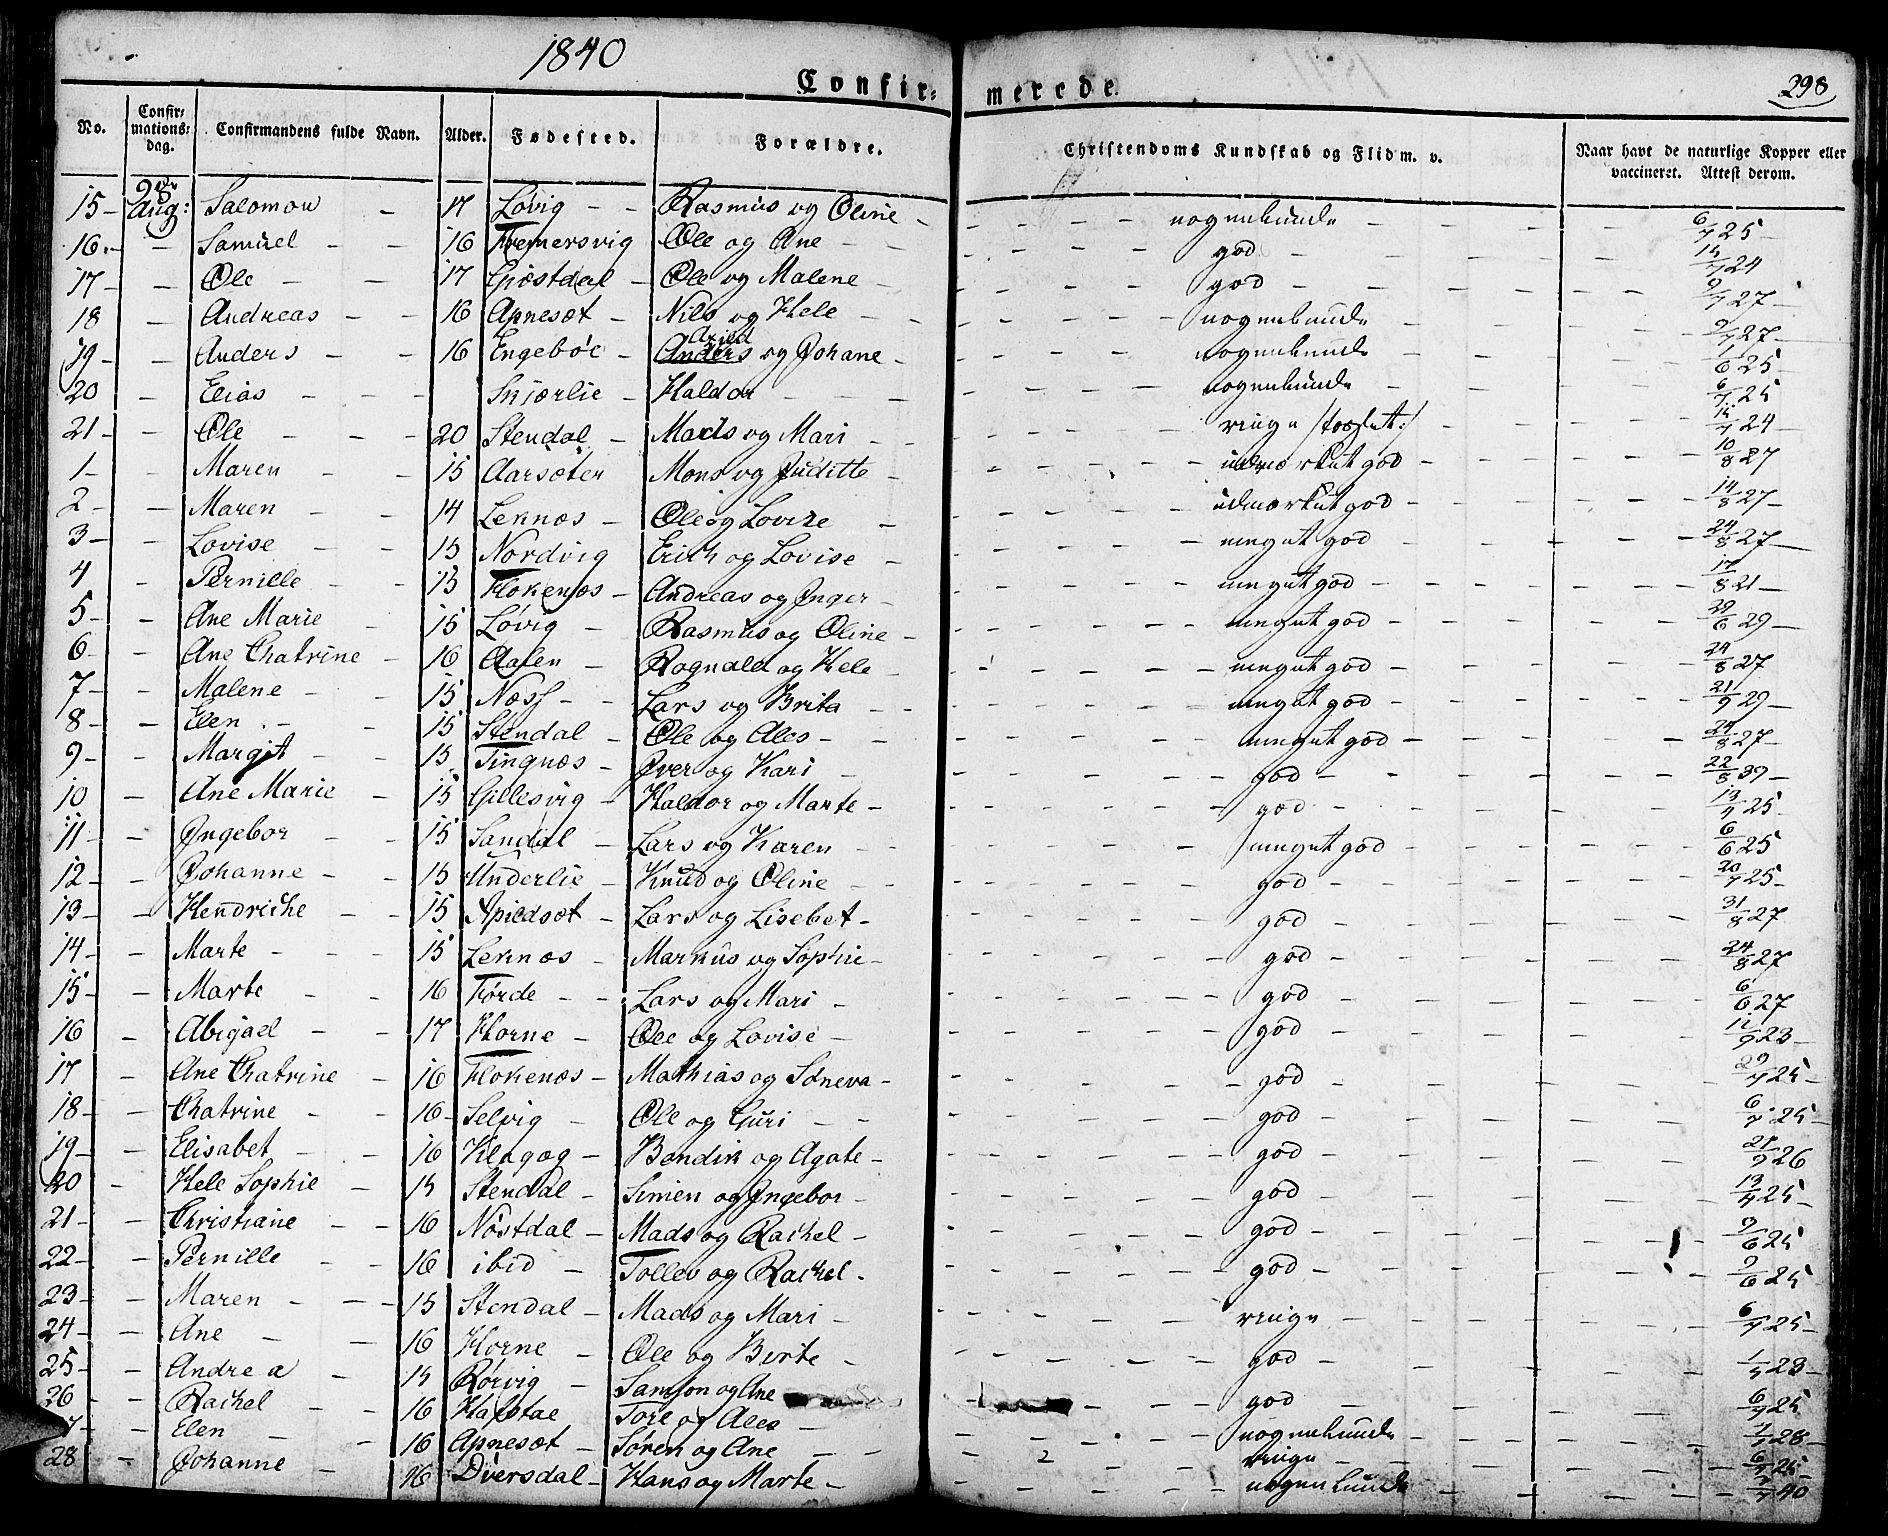 1840
Confir- merede.
298
No. Confirmations-dag. Confirmandens fulde Navn. Alder. Fødested. Forældre. Christendoms Kundskab og Flid m. v. Naar havt de naturlige Kopper eller vaccineret. Attest derom.
15 - Aug: Salomon - 17 Løvig - - Rasmus og Oline - nogenlunde 6/7 25 -
16. - - Samuel - - 16 Ole og Ane - - god 24 -
17 - - Ole - - 17 - Ole og Malene - god 9/7 27 -
18 - Andreas - - 16 Apnesæt - Nils og Hele - - nogenlunde - 9/7 27 -
19 - - Anders - - 16 Engebøe - Arild Anders og Johane - nogenlunde 1/6 25 -
20 - Elias - - - Skjærlie - Haldor - nogenlunde - 6/7 25
21 - - Ole - - - 20 Stendal - Mads og Mari - - ringe 24 -
1 - - Maren - - 15 Aarsæter Mons og Juditte - udmærket god - 10/8 27
2 - - Maren - - 14 Leknæs - Ole og Lovise - udmærket god - 14/8 27 -
3 - - Lovise - - 15 Nordvig Erich og Lovise - meget god - 24/8 27 -
4 - Pernille - - 15 Flokenæs - Andreas og Inger - meget god - 17/8 21 -
5 - - Ane Marie - 15 Løvig - Rasmus og Oline - meget god - 29/6 29 -
6 - - Ane Chatrine - 16 Aalen - Rognald og Hele - meget god - 24/8 27
7 - - Malene - - 15 Næss - - Lars og Brita - - meget god - 21/9 29 -
8 - - Elen - - 15 Stendal - Ole og Ales - - meget god - 24/8 27 -
9 - - Margit - - 15 Tingnæs - Iver og Kari - god - 22/8 39 -
10 - Ane Marie - 15 Gillesvig - Haldor og Marte - god - 13/7 25 -
11 - - Ingebor - - 15 Sandal - Lars og Karen - - meget god - 6/6 25
12 - - Johanne - - 15 Underlie - Knud og Oline - - god - 20/7 25 -
13 - - Hendriche - - 15 Apieldsæt - Lars og Lisebet - god - 31/8 27
14 - - Marte - - - 15 Leknæs - Markus og Sophie - god - 24/8 27
15 - - Marte - - 16 Førde - - Lars og Mari - god - 6/6 27
16 - Abigael - - 17 Horne - Ole og Lovise - god - 11/9 23 -
17 - Ane Chatrine - 16 Flokenæs - Mathias og Søneva - god - 29/7 25 -
18 - - Chatrine - - 16 - Selvig - Ole og Guri - - god - 6/7 25 -
19 - - Elisabet - - 16 Klagæg - Bendik og Agate - god - 26
20 - Hele Sophie - 15 Stendal - Simen og Ingebor - god - 13/7 25 -
21 - - Christiane - - 16 Nøstdal - Mads og Rachel - god - 9/6 25
22 - - Pernille - - 16 ibid - Tollev og Rachel - god - 9/6 25
23 - - Maren - - - 15 Stendal - Mads og Mari - ringe 6/7 25 -
24 - - Ane - - 16 Horne - Ole og Birte - god - 23 -
25 - - Andrea - 15 Rørvig - Samson og Ane god - 6/7 25
26 - - Rachel - - 16 Hafstae - Tore og Ales - nogenlunde 28 -
7 - - Elen - - 16 Apnesæt - Søren og Ane - - ringe - 6/7 25 -
28 - Johanne - 16 Diversdal - Hans og Marte - nogenlunde 40